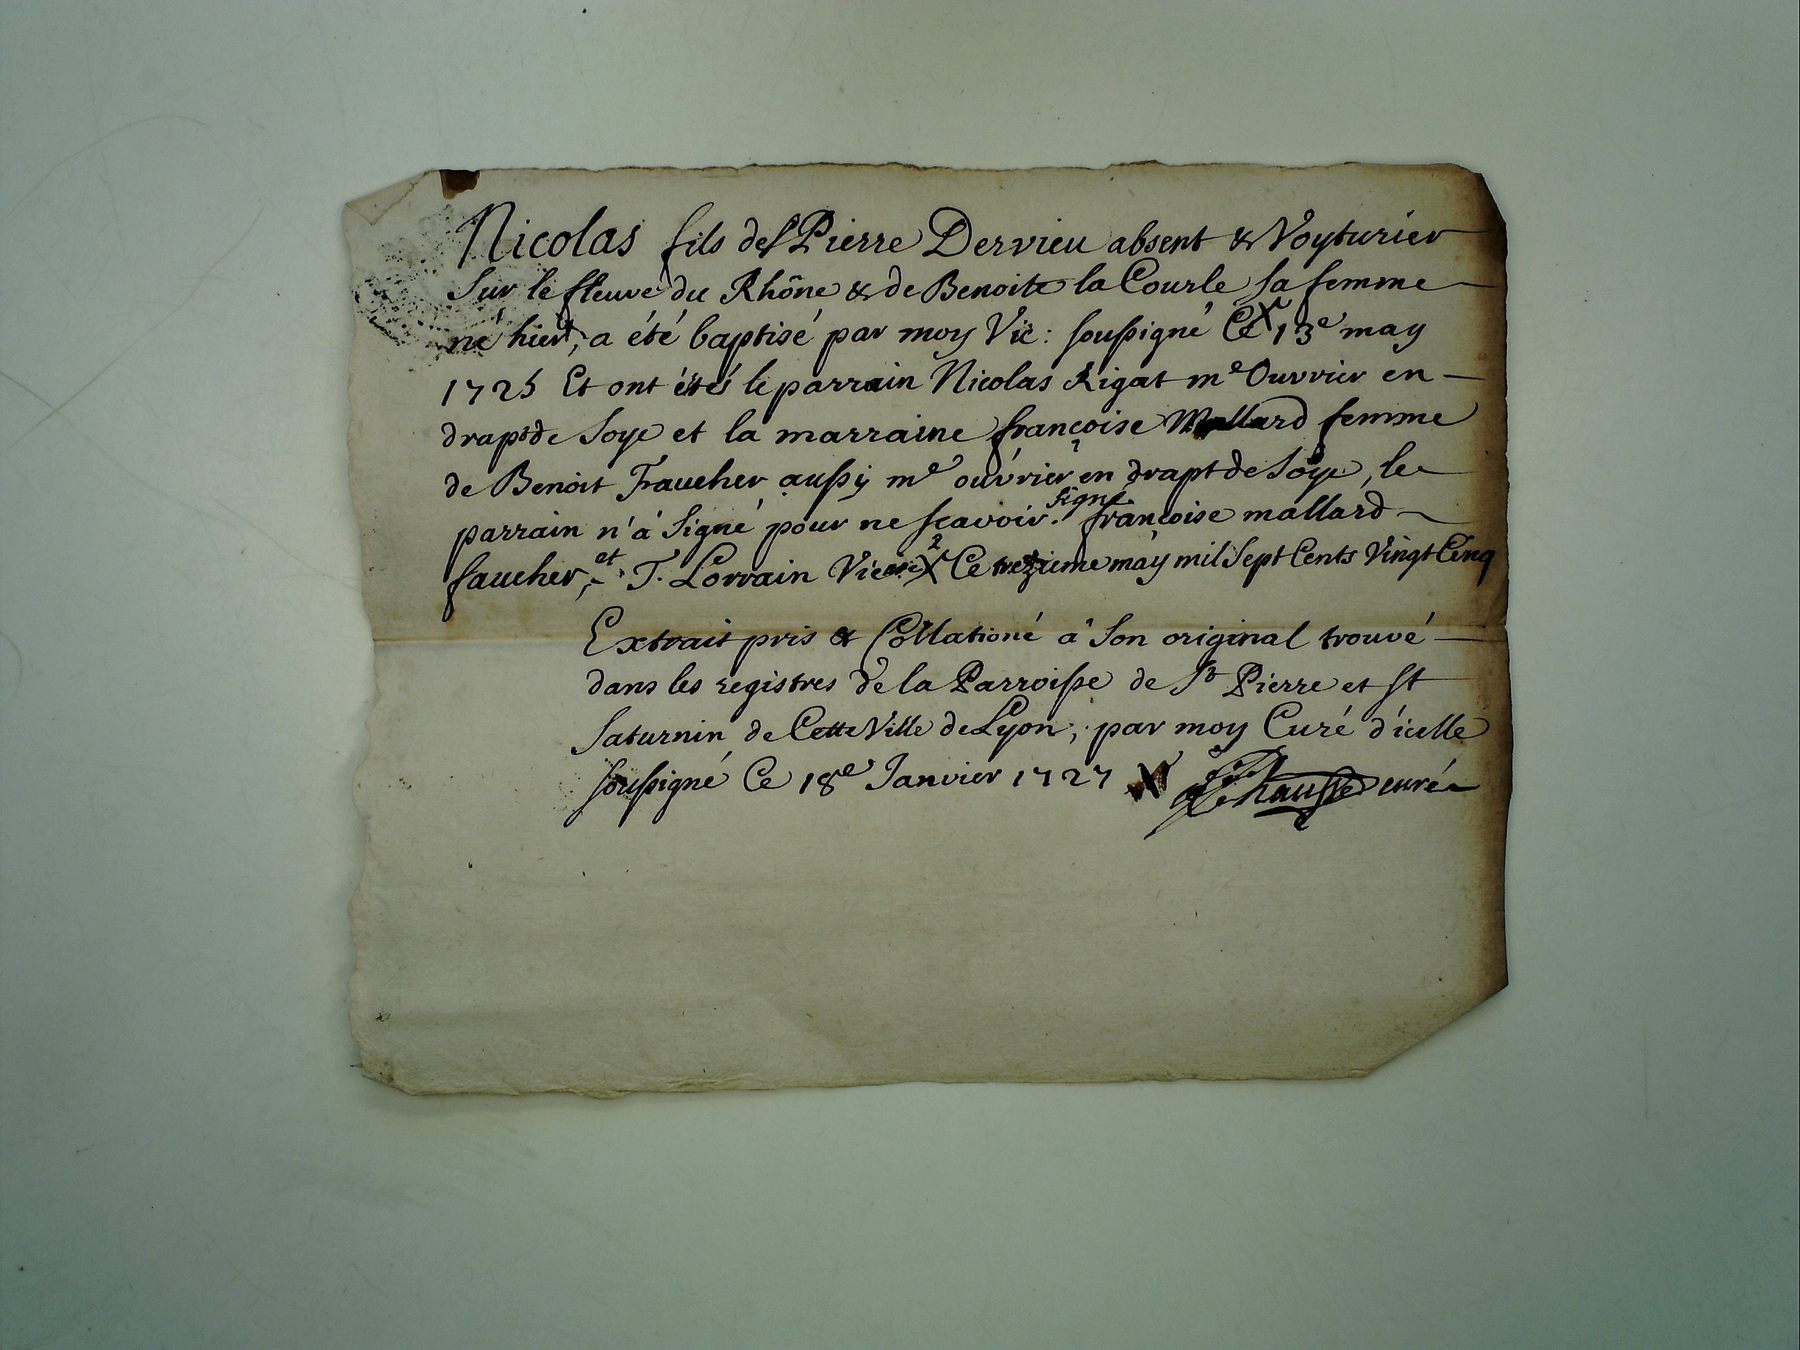 Nicolas fils de Sr Pierre Dervieu absent & Voyturier
Sur le fleuve du Rhône & de Benoite la Courle sa femme
né hier, a été baptisé par moy Vic: soussigné Ce 13e may
1725 Et ont étés le parrain Nicolas Rigat me Ouvrier en
drapt de Soye et la marraine françoise Mallard femme
de Benoit Faucher aussy me ouvrier en drapt de Soye, le
parrain n'a Signé pour ne sçavoir. Signé françoise mallard
faucher, et T. Lorrain Vicaire Ce trezieme may mil Sept Cents Vingt Cinq
Extrait pris & Collationé a Son original trouvé
dans les registres de la Parroisse de St Pierre et St
Saturnin de Cette Ville de Lyon, par moy Curé d'icelle
soussigné Ce 18e Janvier 1727
curé